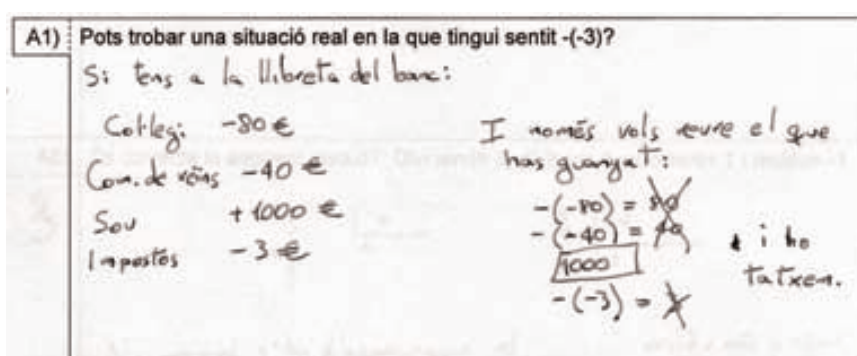 A1) Pots trobar una situació real en la que tingui sentit -(-3)?
Si tens a la llibreta del banc:
Col·legi -80 €
Com. de veïns -40 €
Sou +1000 €
Impostos -3 €
I només vols veure el que
has guanyat:
-(-80) = 80
-(-40) = 40
1000
-(-3) =
i ho
tatxen.